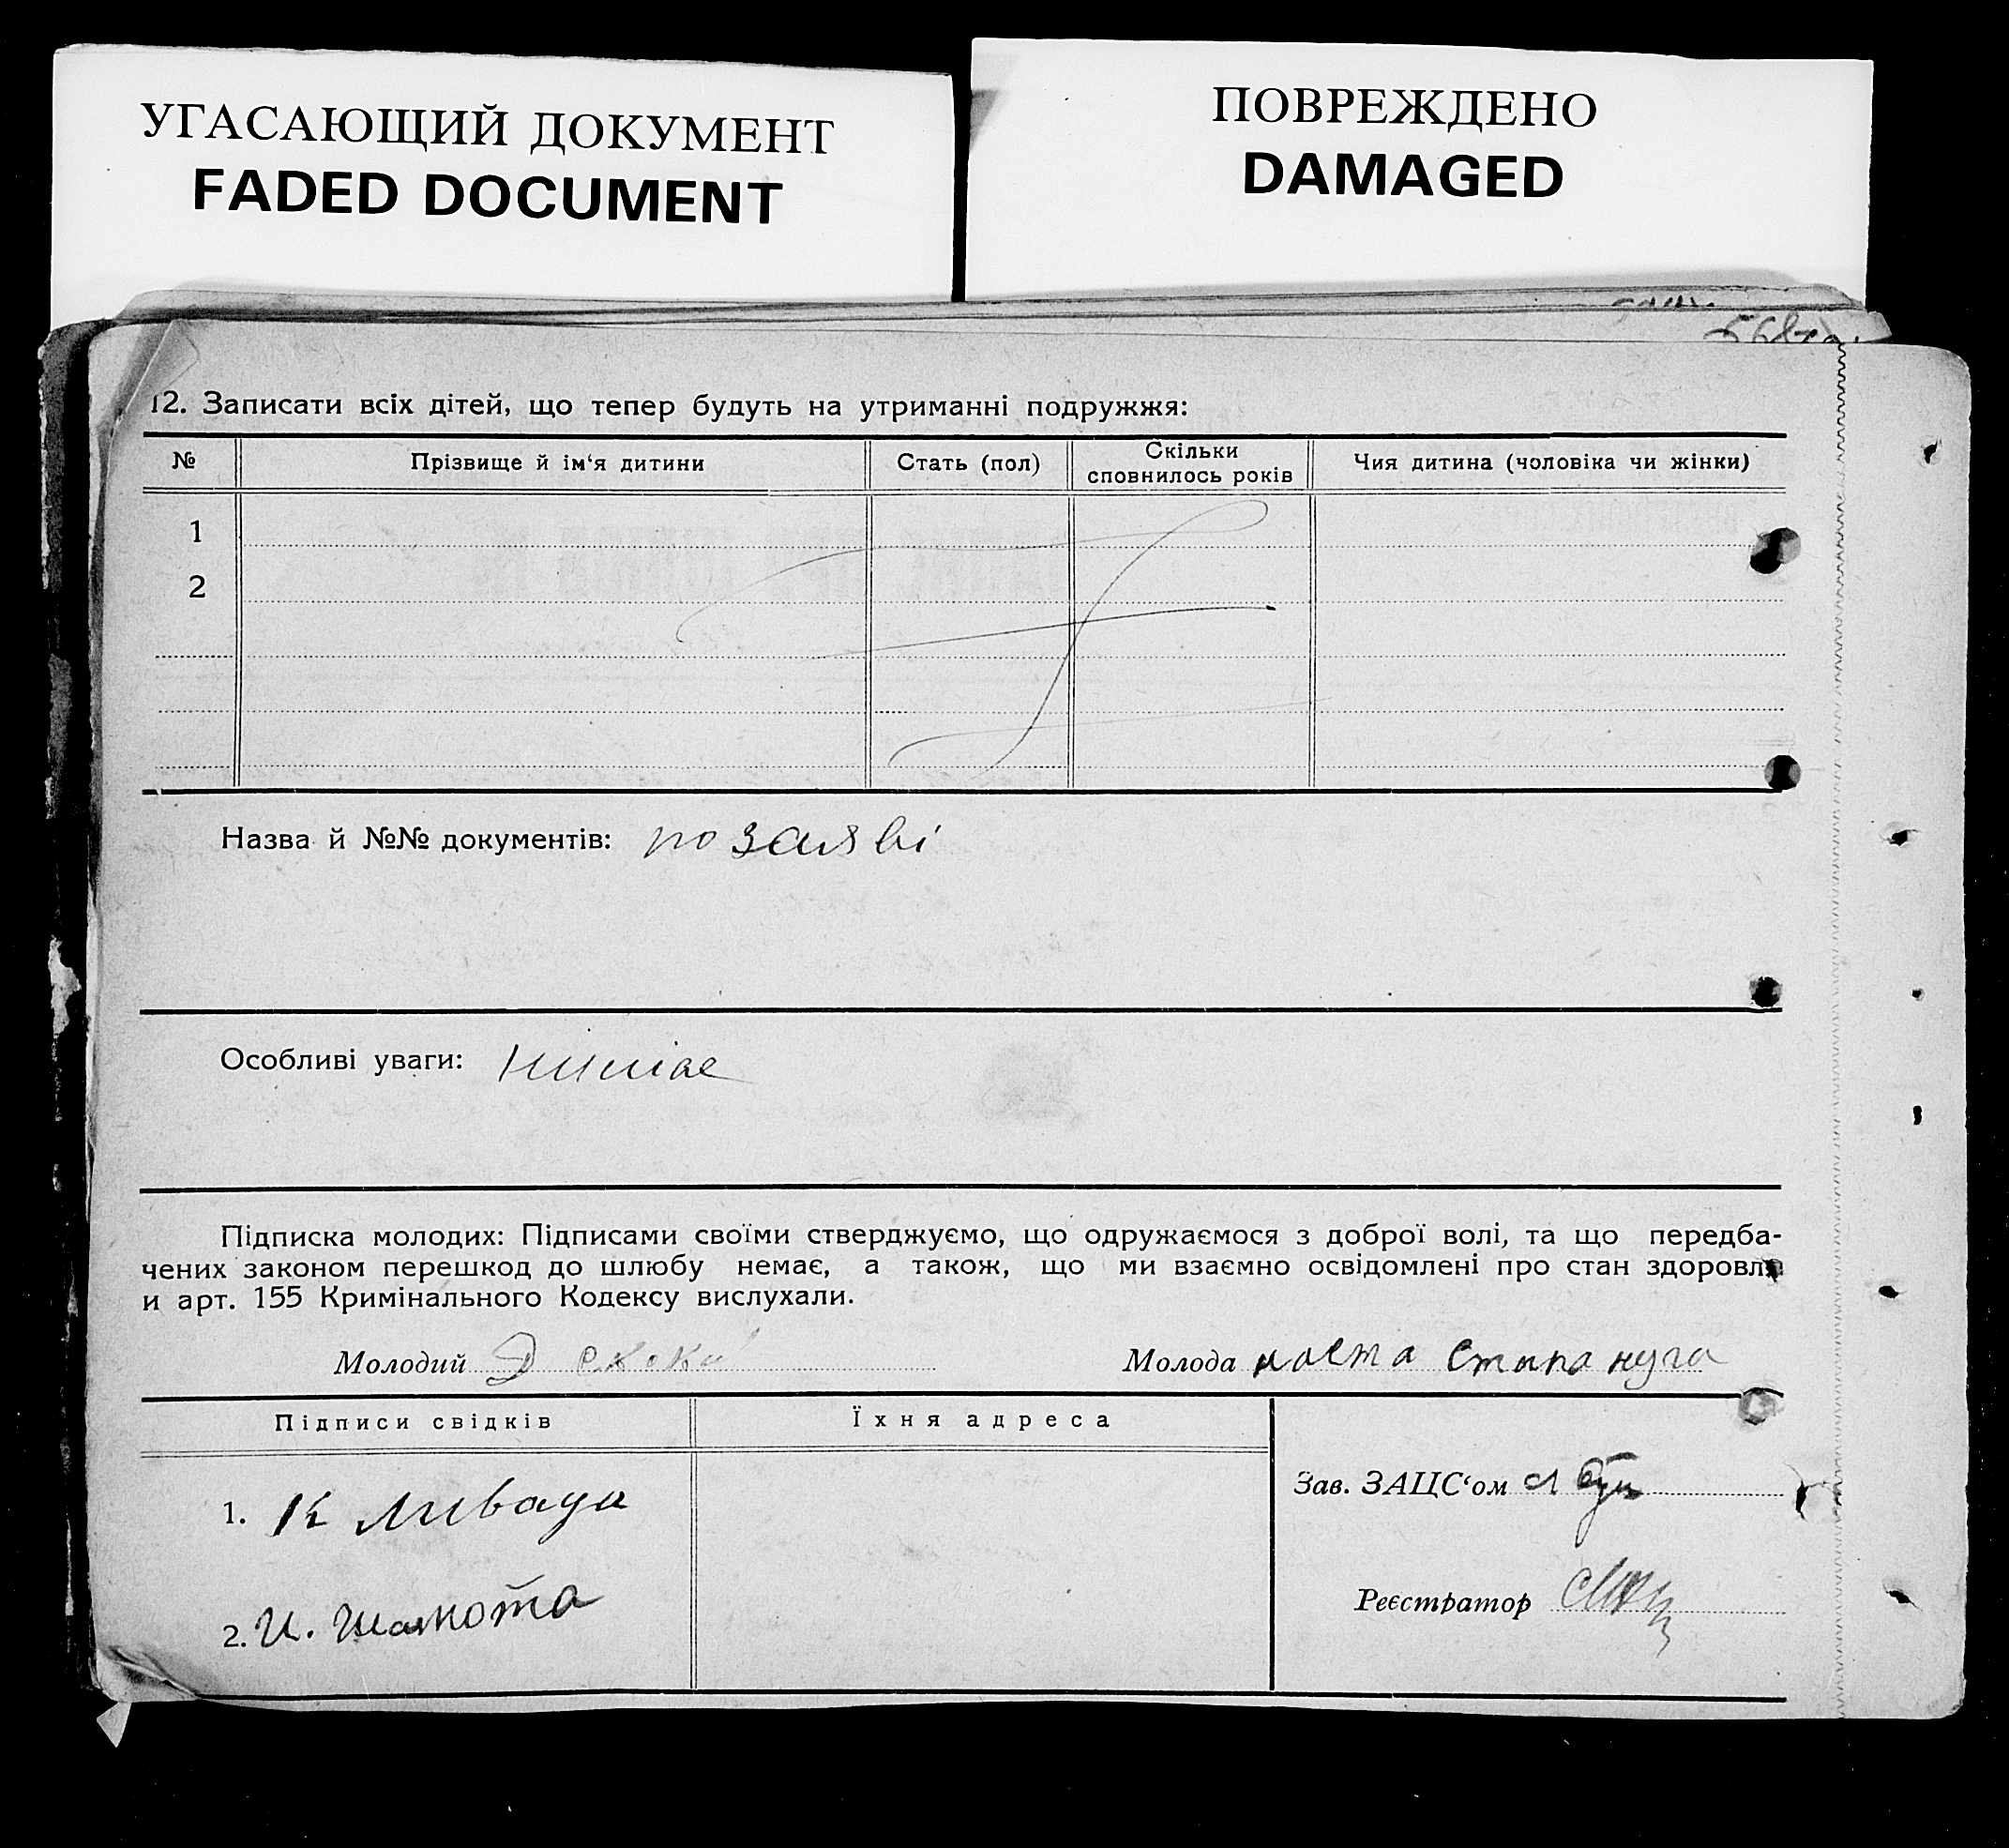 УГАСАЮЩИЙ ДОКУМЕНТ
FADED DOCUMENT
ПОВРЕЖДЕНО
DAMAGED
12. Записати всіх дітей, що тепер будуть на утриманні подружжя:
№ Прізвище й ім‘я дитини Стать (пол) Скільки сповнилось років Чия дитина (чоловіка чи жінки)
1
2
Назва й №№ документів: по заяві
Особливі уваги: немає
Підписка молодих: Підписами своїми стверджуємо, що одружаємося з доброї волі, та що передба-
чених законом перешкод до шлюбу немає, а також, що ми взаємно освідомлені про стан здоровля
и арт. 155 Кримінального Кодексу вислухали.
Молодий Молода
Підписи свідків Їхня адреса
Зав. ЗАЦС‘ом
1. К Ливада
Реєстратор
2. И. Шамота